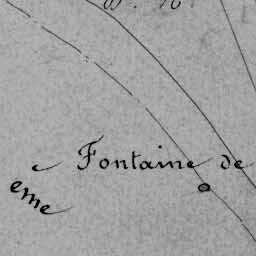 Fontaine de
eme